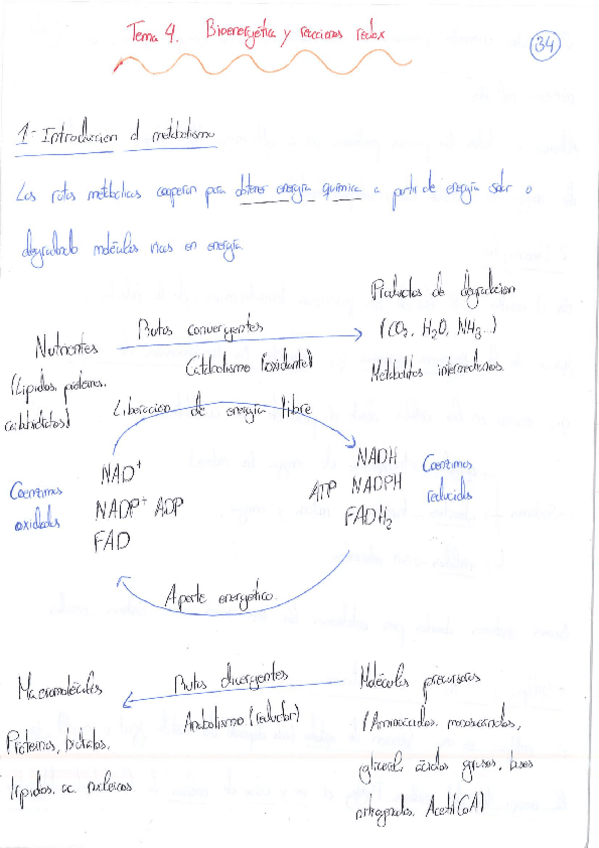 Tema 4. Bioenergética y reacciones redox
34
1- Introduccion al metabolismo
Las rutas metabólicas cooperan para obtener energía química a partir de energía solar o
degradando moléculas ricas en energía
Nutrientes
(Lípidos, proteínas,
carbohidratos)
Rutas convergentes
Catabolismo (oxidante)
Liberacion de energía libre
Productos de degradacion
(CO2, H2O, NH3...)
Metabolitos intermediarios.
Coenzimas
oxidadas
NAD+
NADP+ ADP
FAD
NADH
ATP NADPH
FADH2
Coenzimas
reducidas
Aporte energético.
Macromoléculas
Proteínas,
lípidos, ac. nucleicos
Rutas divergentes
Anabolismo (reductor)
Moléculas precursoras
(Aminoácidos, monosacáridos,
glicerol, ácidos grasos, bases
nitrogenadas, Acetil CoA)